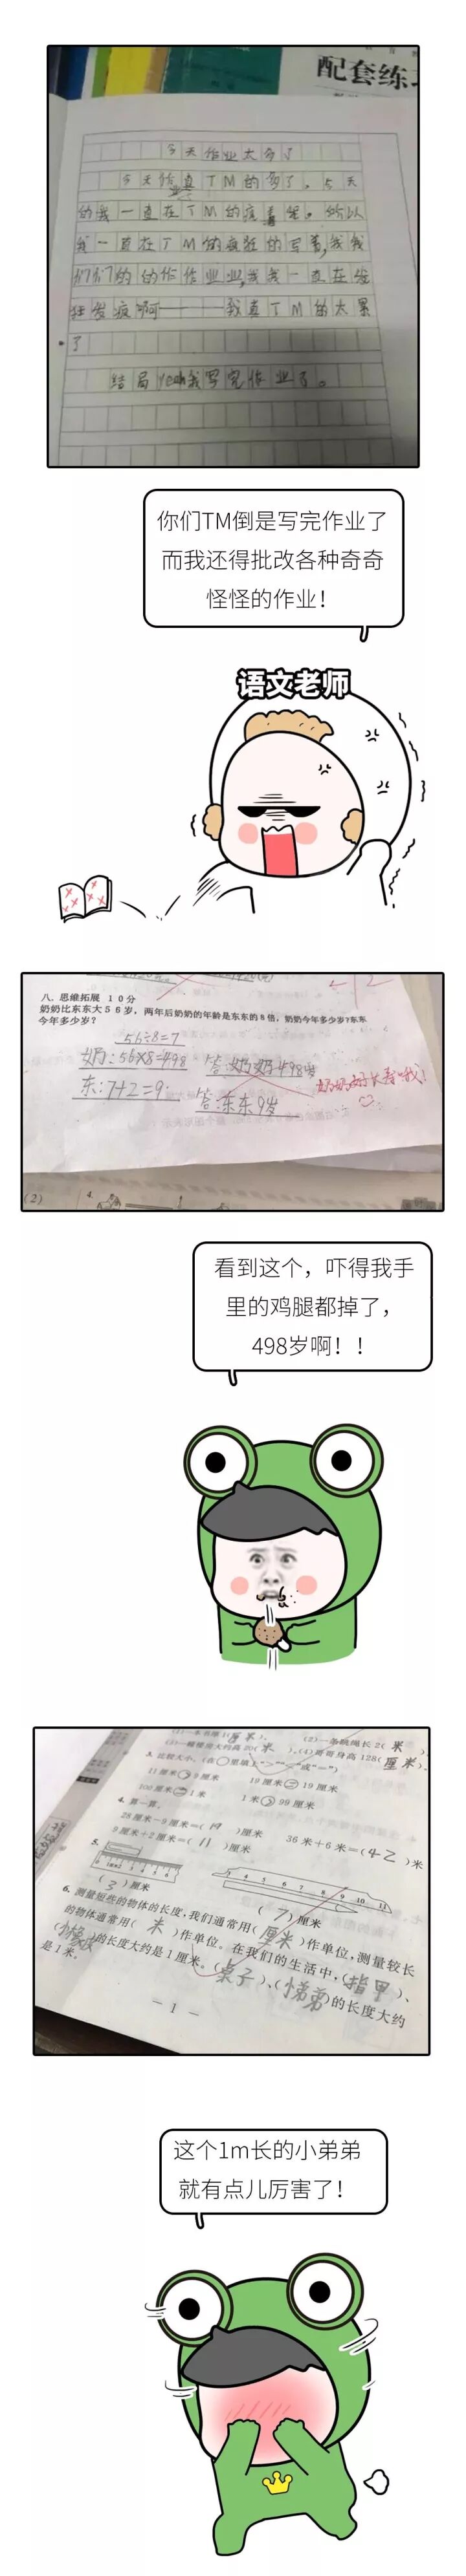 配套练习
今天作业太多了
今天作业真TM的多了。今天
的我一直在TM的疯着呢。所以
我一直在TM的疯狂的写着,我我
们们的的作作业业,我我一直在经
狂发疯啊——我真TM的太累
了
结局yeah我写完作业了。
你们TM倒是写完作业了
而我还得批改各种奇奇
怪怪的作业!
语文老师
八、思维拓展 10分
奶奶比东东大56岁,两年后奶奶的年龄是东东的8倍,奶奶今年多少岁?东东
今年多少岁?
56÷8=7
奶:56×8=498 答:奶奶498岁
东:7+2=9 答:东东9岁
奶奶好长寿哦!
(2)
4.
看到这个,吓得我手
里的鸡腿都掉了,
498岁啊!!
(2)一条跳绳长2(米)
(4)哥哥身高128(厘米)。
3. 比较大小。(在○里填“>”“<”或“=”)
11厘米>9厘米 19厘米=19厘米
100厘米=1米 1米>99厘米
4. 算一算。
28厘米-9厘米=(19)厘米 36米+6米=(42)米
9厘米+2厘米=(11)厘米
5.
(3)厘米 (7)厘米
6. 测量短些的物体的长度,我们通常用(厘米)作单位,测量较长
的物体通常用(米)作单位。在我们的生活中,(指甲)、
(橡皮)的长度大约是1厘米。(桌子)、(弟弟)的长度大约
是1米。
— 1 —
这个1m长的小弟弟
就有点儿厉害了!